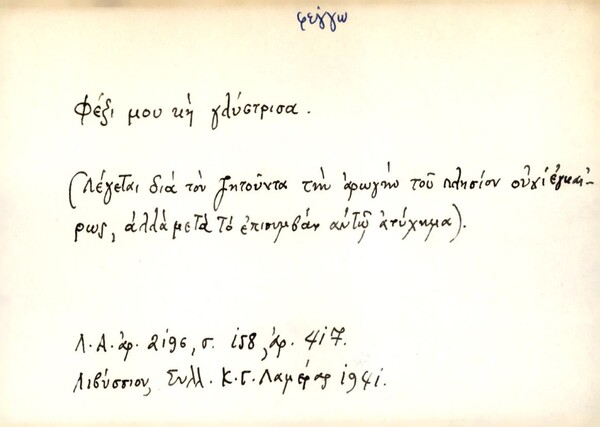 φέγγω
Φέξι μου κὴ γλύστρισα.
(Λέγεται διὰ τὸν ζητοῦντα τὴν ἀρωγὴν τοῦ πλησίον οὐχὶ ἐγκαί-
ρως, ἀλλὰ μετὰ τὸ ἐπισυμβὰν αὐτῷ ἀτύχημα).
Λ.Α. ἀρ. 2196, σ. 158, ἀρ. 417.
Λιβύσσιον, Συλλ. Κ.Γ. Λαμέρας 1941.